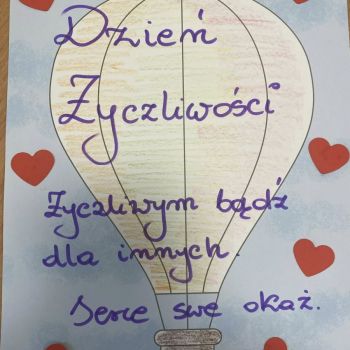 Dzień
Życzliwości
Życzliwym bądź
dla innych.
Serce swe okaż.